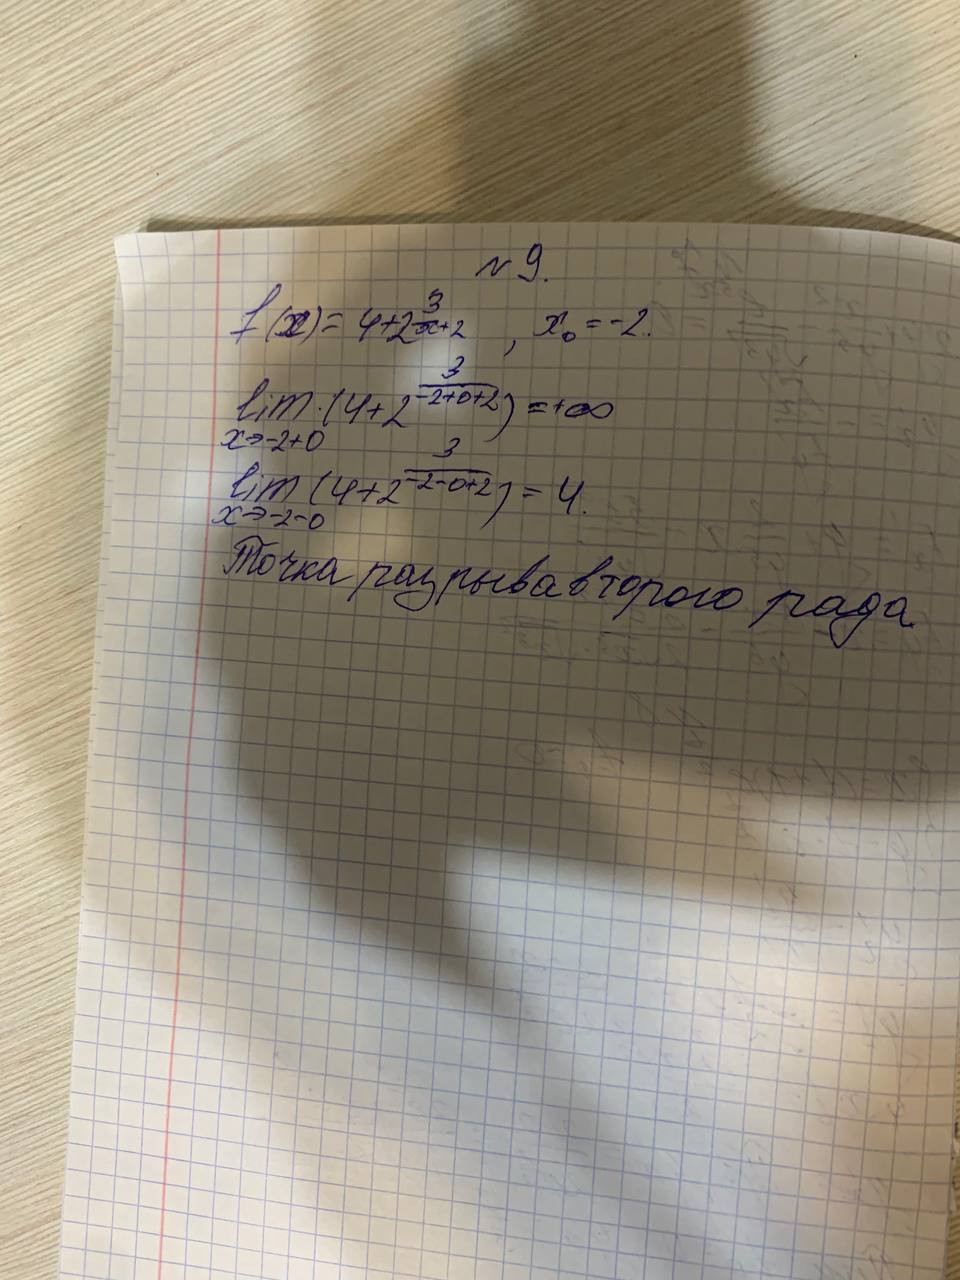 № 9.
f(x) = 4+2^(3/(x+2)), x₀ = -2.
lim (4+2^(3/(-2+0+2))) = +∞
x→-2+0
lim (4+2^(3/(-2-0+2))) = 4.
x→-2-0
Точка разрыва второго рода.